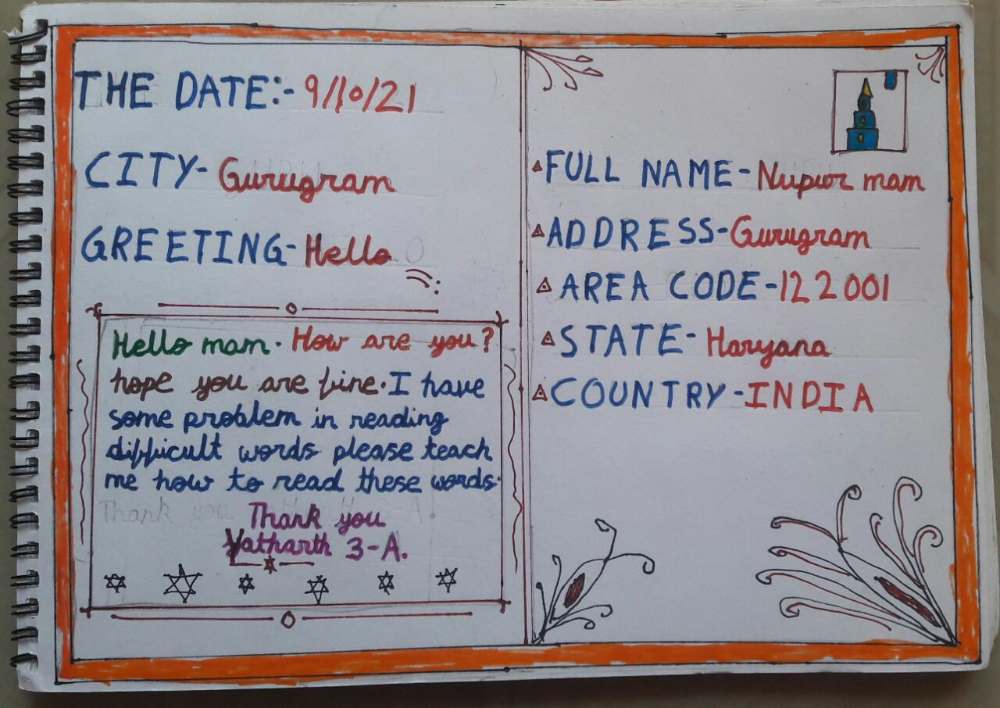 THE DATE:- 9/10/21
CITY- Gurugram
GREETING- Hello
Hello mam. How are you?
hope you are fine. I have
some problem in reading
difficult words please teach
me how to read these words.
Thank you
Yatharth 3-A.
FULL NAME- Nupur mam
ADDRESS- Gurugram
AREA CODE- 122001
STATE- Haryana
COUNTRY- INDIA